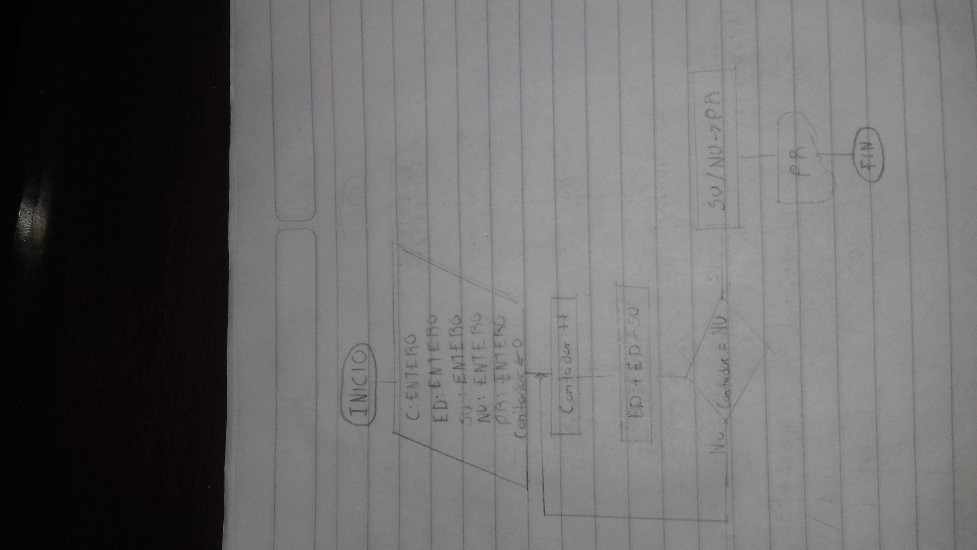 INICIO
C: ENTERO
ED: ENTERO
SU: ENTERO
NU: ENTERO
PR: ENTERO
Contador ← 0
Contador ++
ED + ED → SU
Contador = NU
No
SU / NU → PR
PR
FIN